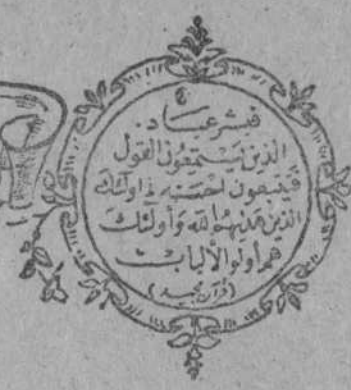 فبشر عباد
الذين يستمعون القول
فيتبعون احسنه اولئك
الذين هديهم الله واولئك
هم اولو الألباب
(قرآن مجيد)